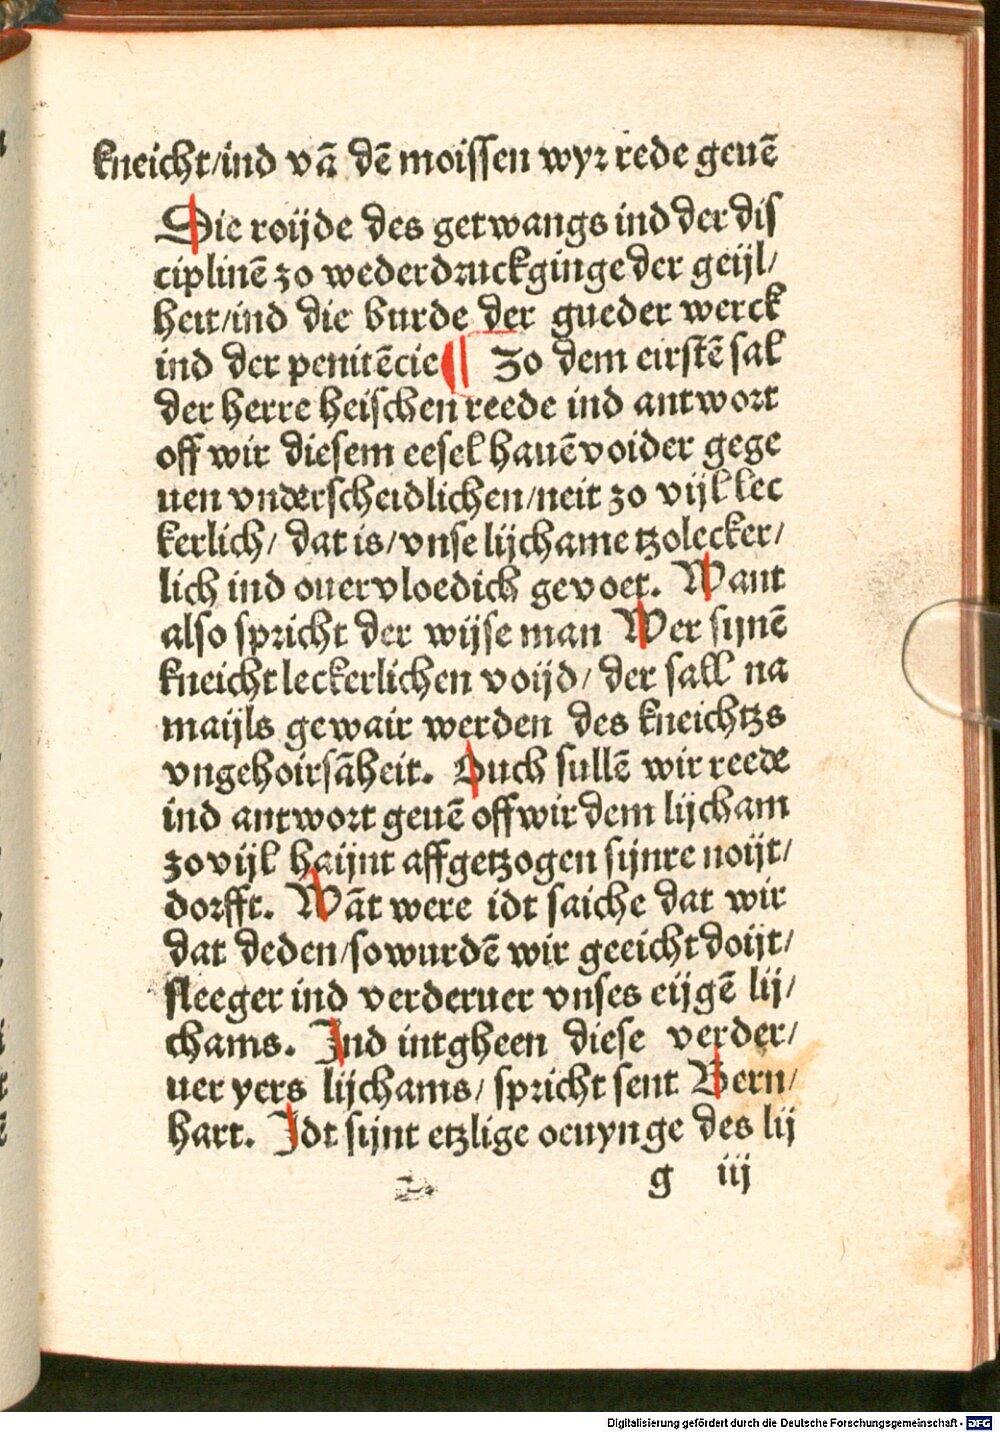 kneicht/ind vā dē moissen wyr rede geuē
Die roijde des getwangs ind der dis
ciplinē zo wederdruckginge der geijl/
heit/ind die burde der gueder werck
ind der penitēcie ¶ Zo dem eirstē sal
der herre heischen reede ind antwort
off wir diesem eesel hauē voider gege
uen vnderscheidlichen/neit zo vijl lec
kerlich/ dat is/vnse lijchame tzolecker/
lich ind ouervloedich gevoet. Want
also spricht der wijse man Wer sijnē
kneicht leckerlichen voijd/ der sall na
maijls gewair werden des kneichtzs
vngehoirsāheit. Ouch sullē wir reede
ind antwort geuē off wir dem lijcham
zo vijl haijnt affgetzogen sijnre noijt/
dorfft. Wāt were idt saiche dat wir
dat deden/so wurdē wir geeicht doijt/
sleeger ind verderuer vnses eijgē lij/
chams. Ind intgheen diese verder/
uer yers lijchams/ spricht sent Bern/
hart. Idt sijnt etzlige oeuynge des lij
g iij
Digitalisierung gefördert durch die Deutsche Forschungsgemeinschaft - DFG